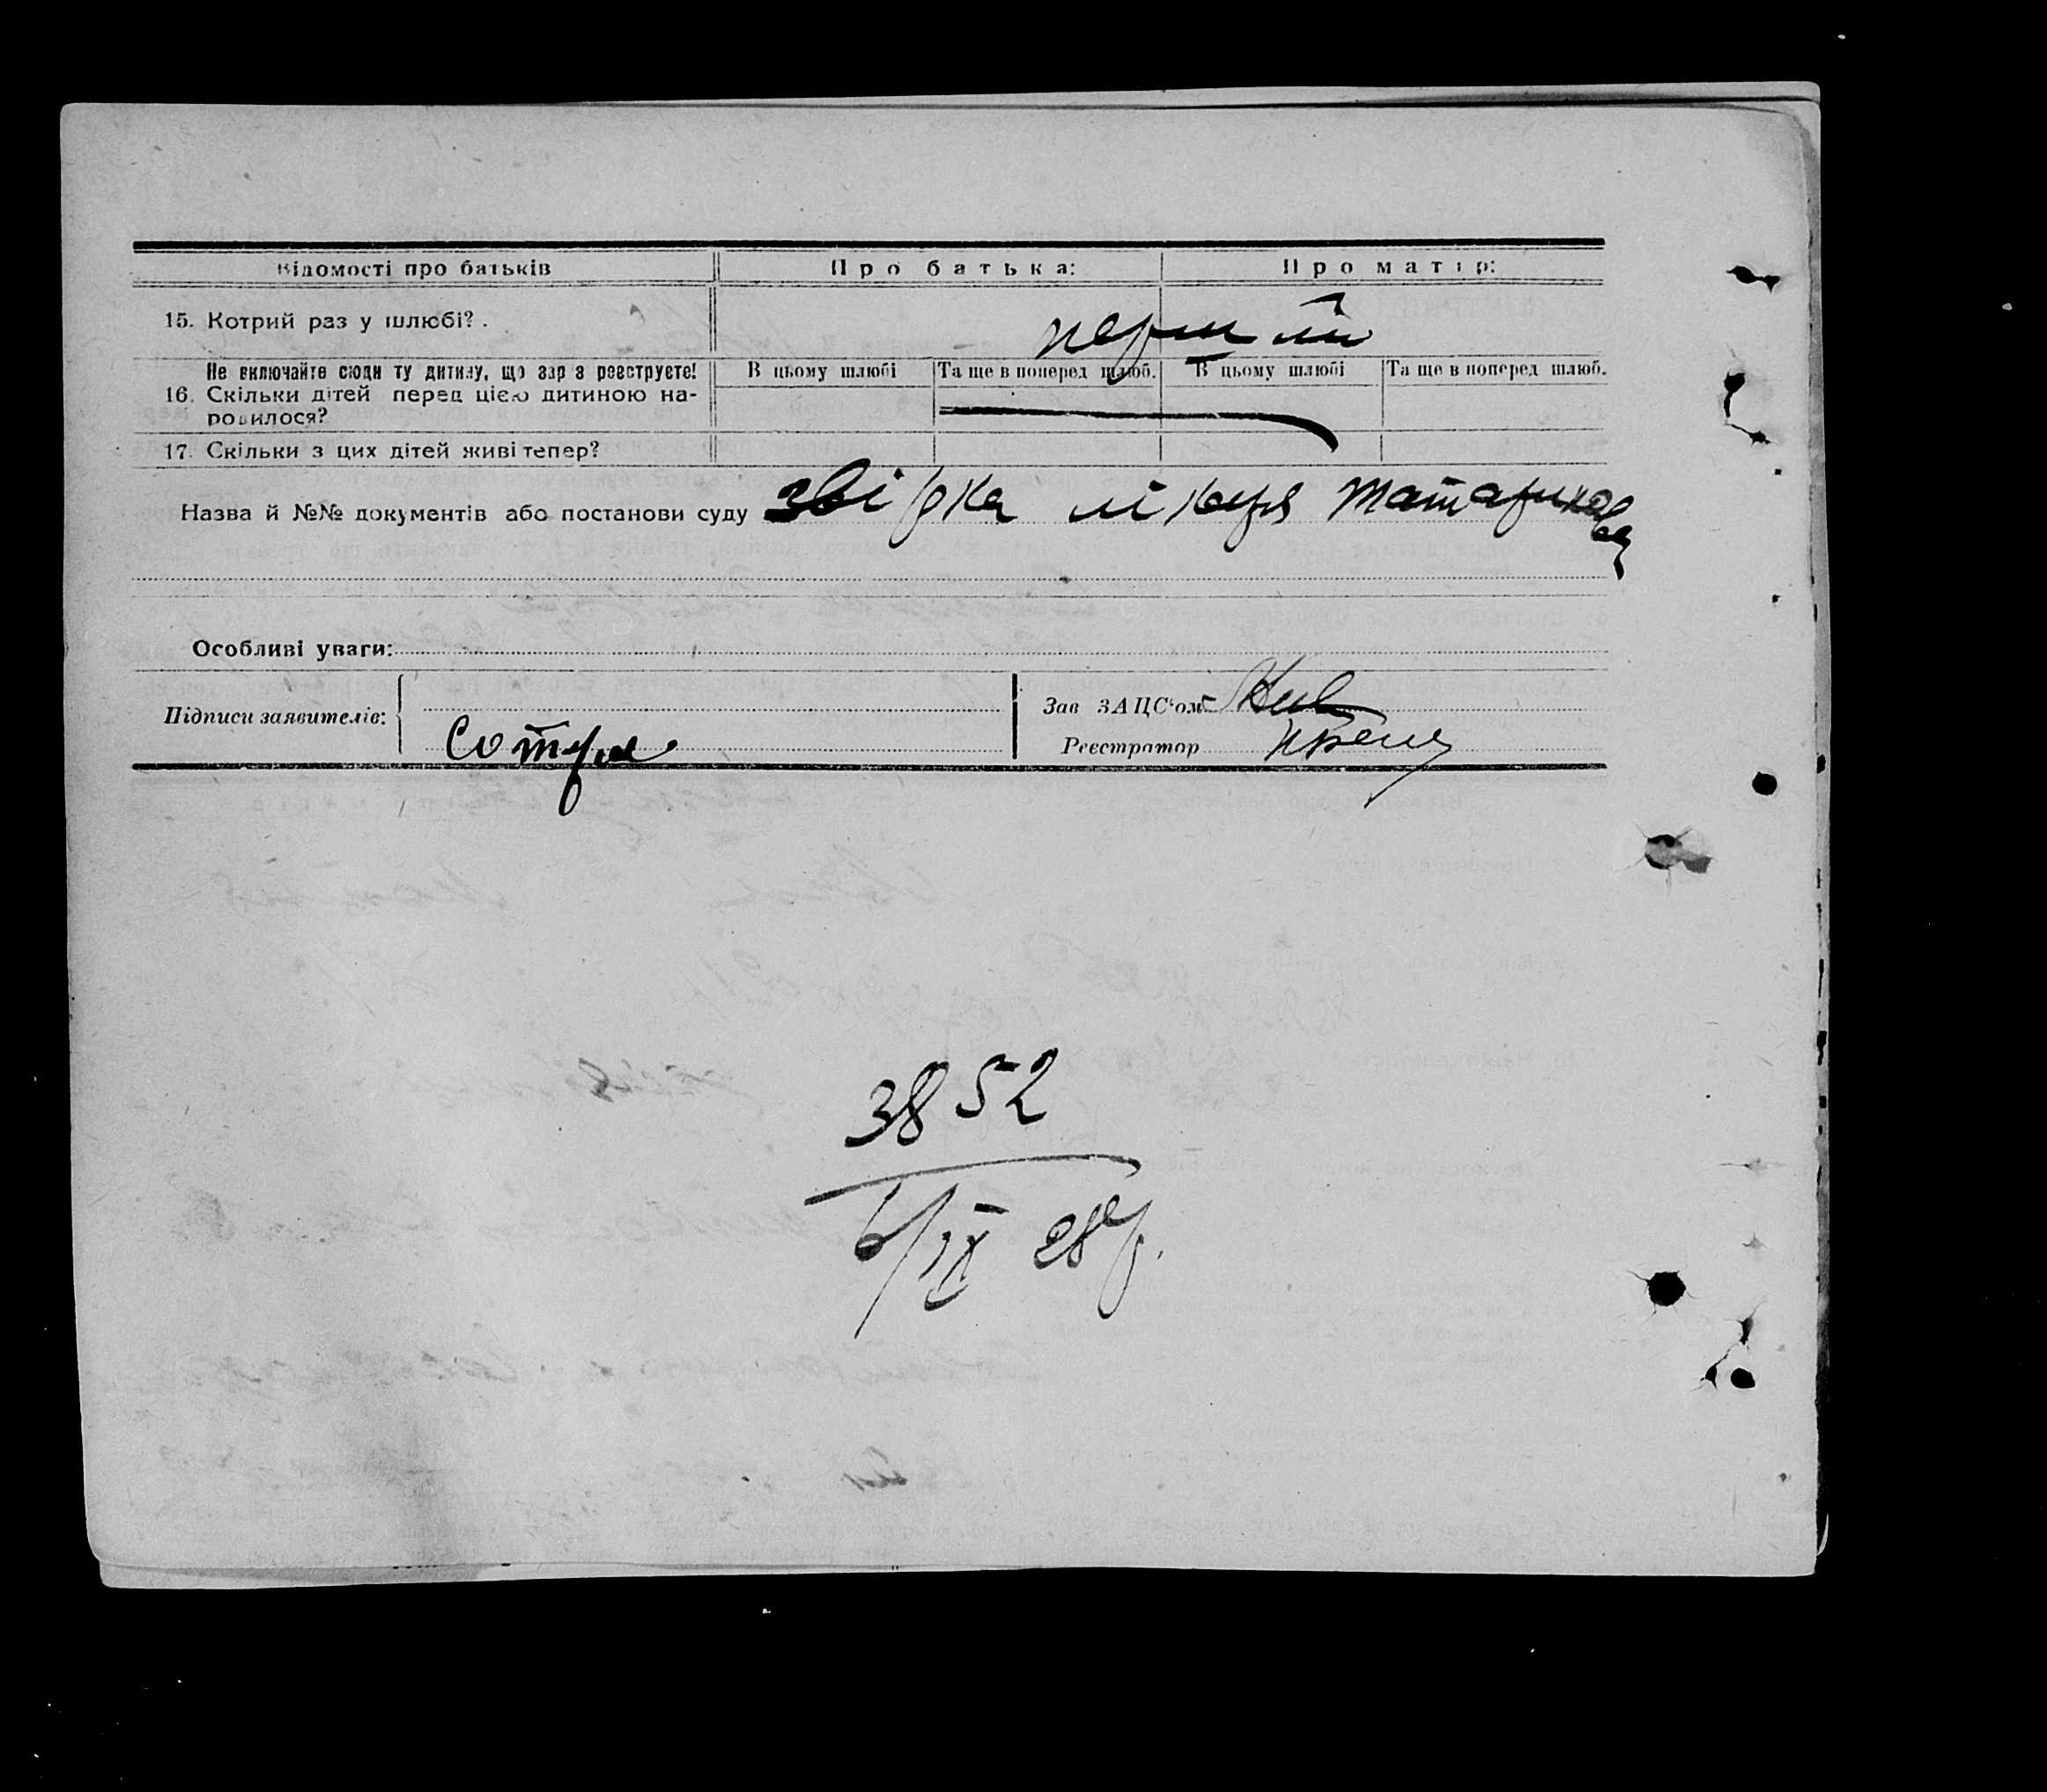 Відомості про батьків Про батька: Про матір:
15. Котрий раз у шлюбі? . перший
Не включайте сюди ту дитину, що зараз реєструєте! В цьому шлюбі Та ще в поперед шлюб. В цьому шлюбі Та ще в поперед шлюб.
16. Скільки дітей перед цією дитиною на-
родилося?
17. Скільки з цих дітей живі тепер?
Назва й №№ документів або постанови суду лікаря
Особливі уваги:
Підписи заявителів:
Зав ЗАЦС'ом
Реєстратор
3852
6/IX 28р.